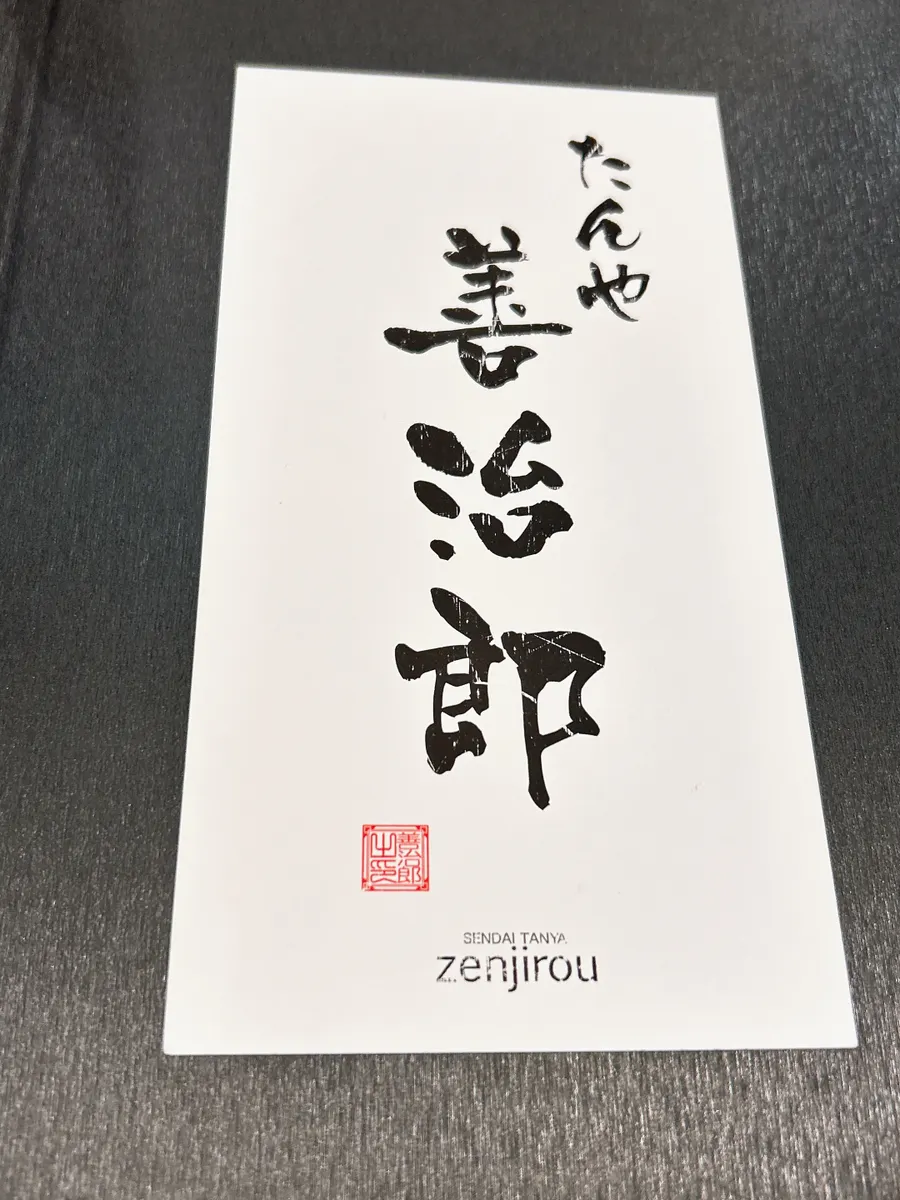 たんや
善治郎
善治郎
之印
SENDAI TANYA
zenjirou